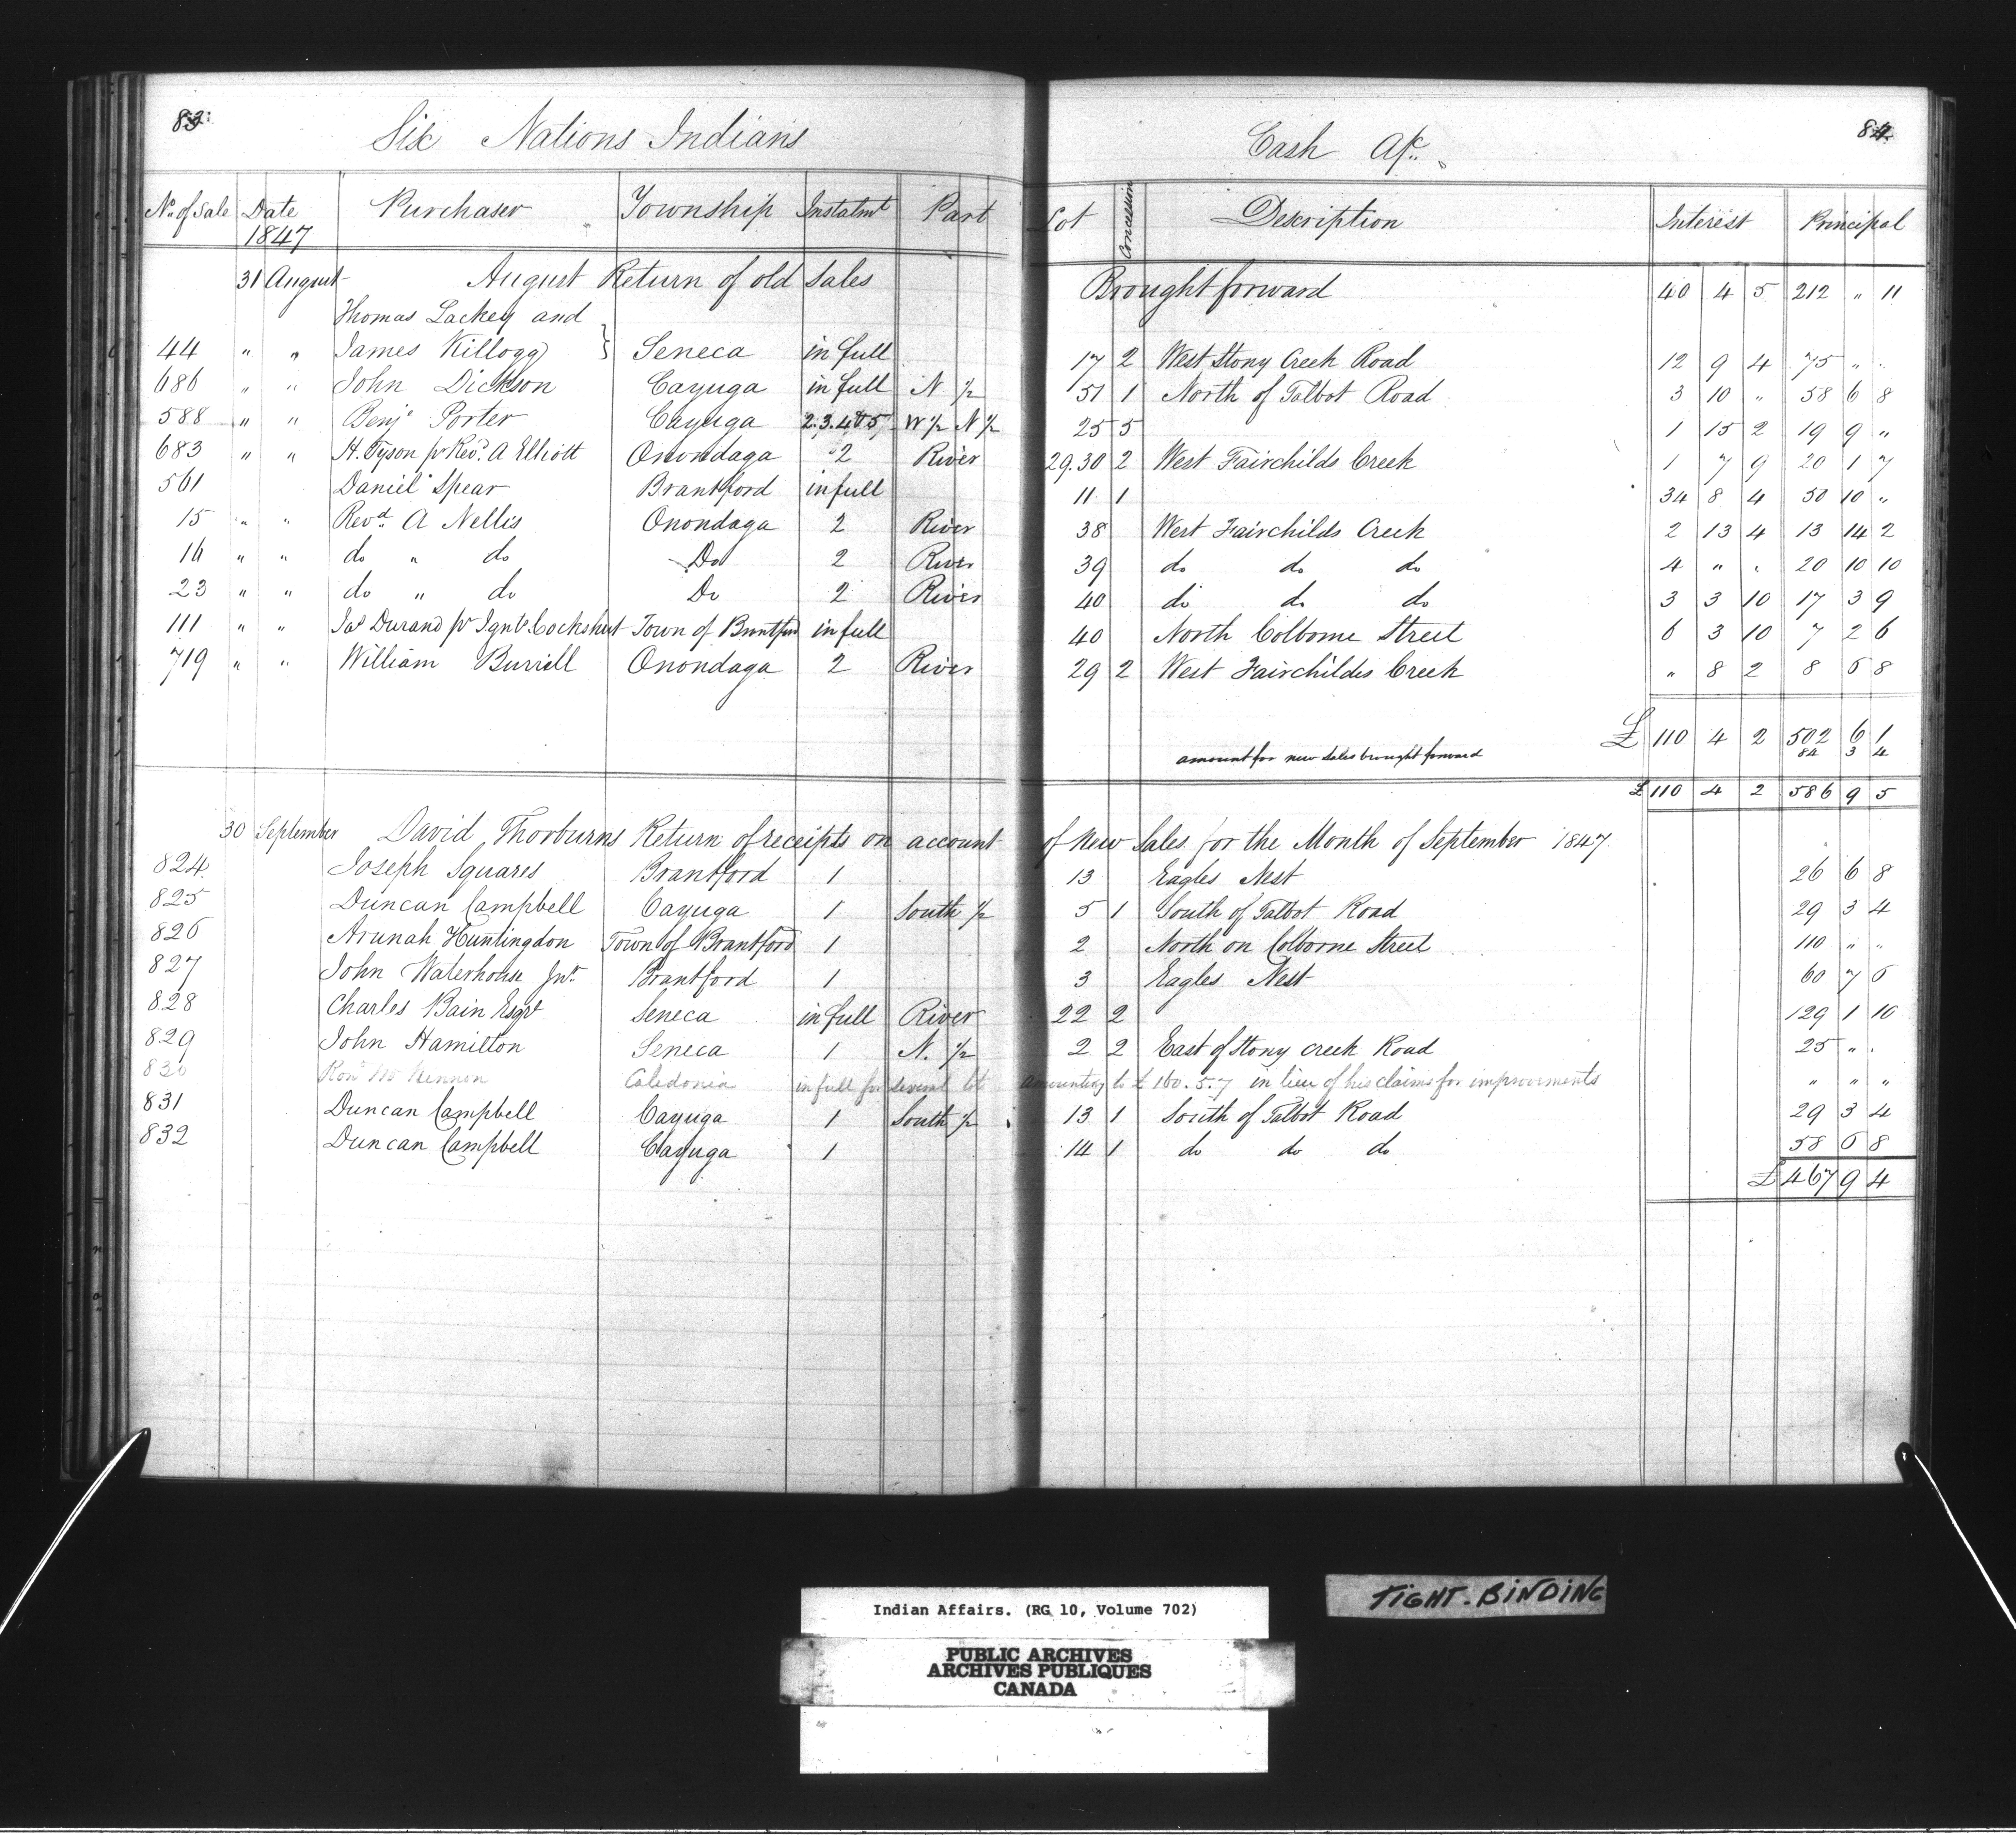 83
Six Nations Indians
Cash A/c.
84
No. of Sale Date 1847 Purchaser Township Instalmt Part Lot Concession Description Interest Principal
31 August August Return of old Sales Brought forward 40 4 5 212 " 11
Thomas Lackey and
44 " " James Killogg } Seneca in full 17 2 West Stony Creek Road 12 9 4 75 " "
686 " " John Dickson Cayuga in full N 1/2 51 1 North of Talbot Road 3 10 " 58 6 8
588 " " Benj. Porter Cayuga 2.3.4 & 5 W 1/2 N 1/2 25 5 1 15 2 19 9 "
683 " " H. Tyson pr Revd. A Elliott Onondaga 2 River 29.30 2 West Fairchilds Creek 1 7 9 20 1 7
561 Daniel Spear Brantford in full 11 1 34 8 4 50 10 "
15 " " Revd. A Nellis Onondaga 2 River 38 West Fairchilds Creek 2 13 4 13 14 2
16 " " do " do Do 2 River 39 do do do 4 " " 20 10 10
23 " " do " do Do 2 River 40 do do do 3 3 10 17 3 9
111 " " Jas Durand pr Ignts Cockshut Town of Brantford in full 40 North Colborne Street 6 3 10 7 2 6
719 " " William Burrill Onondaga 2 River 29 2 West Fairchildes Creek " 8 2 8 6 8
£ 110 4 2 502 6 1
amount for new sales brought forward 84 3 4
£ 110 4 2 586 9 5
30 September David Thorburns Return of receipts on account of New Sales for the Month of September 1847
824 Joseph Squares Brantford 1 13 Eagles Nest 26 6 8
825 Duncan Campbell Cayuga 1 South 1/2 5 1 South of Talbot Road 29 3 4
826 Arunah Huntingdon Town of Brantford 1 2 North on Colborne Street 110 " "
827 John Waterhouse Jnr. Brantford 1 3 Eagles Nest 60 7 6
828 Charles Bain Esqr Seneca in full River 22 2 129 1 10
829 John Hamilton Seneca 1 N. 1/2 2 2 East of Stony creek Road 25 " "
830 Ron. McKinnon Caledonia in full for several lot amounting to £ 160.5.7 in lieu of his claims for improvements " " "
831 Duncan Campbell Cayuga 1 South 1/2 13 1 South of Talbot Road 29 3 4
832 Duncan Campbell Cayuga 1 14 1 do do do 58 6 8
£ 467 9 4
TIGHT. BINDING
Indian Affairs. (RG 10, Volume 702)
PUBLIC ARCHIVES
ARCHIVES PUBLIQUES
CANADA